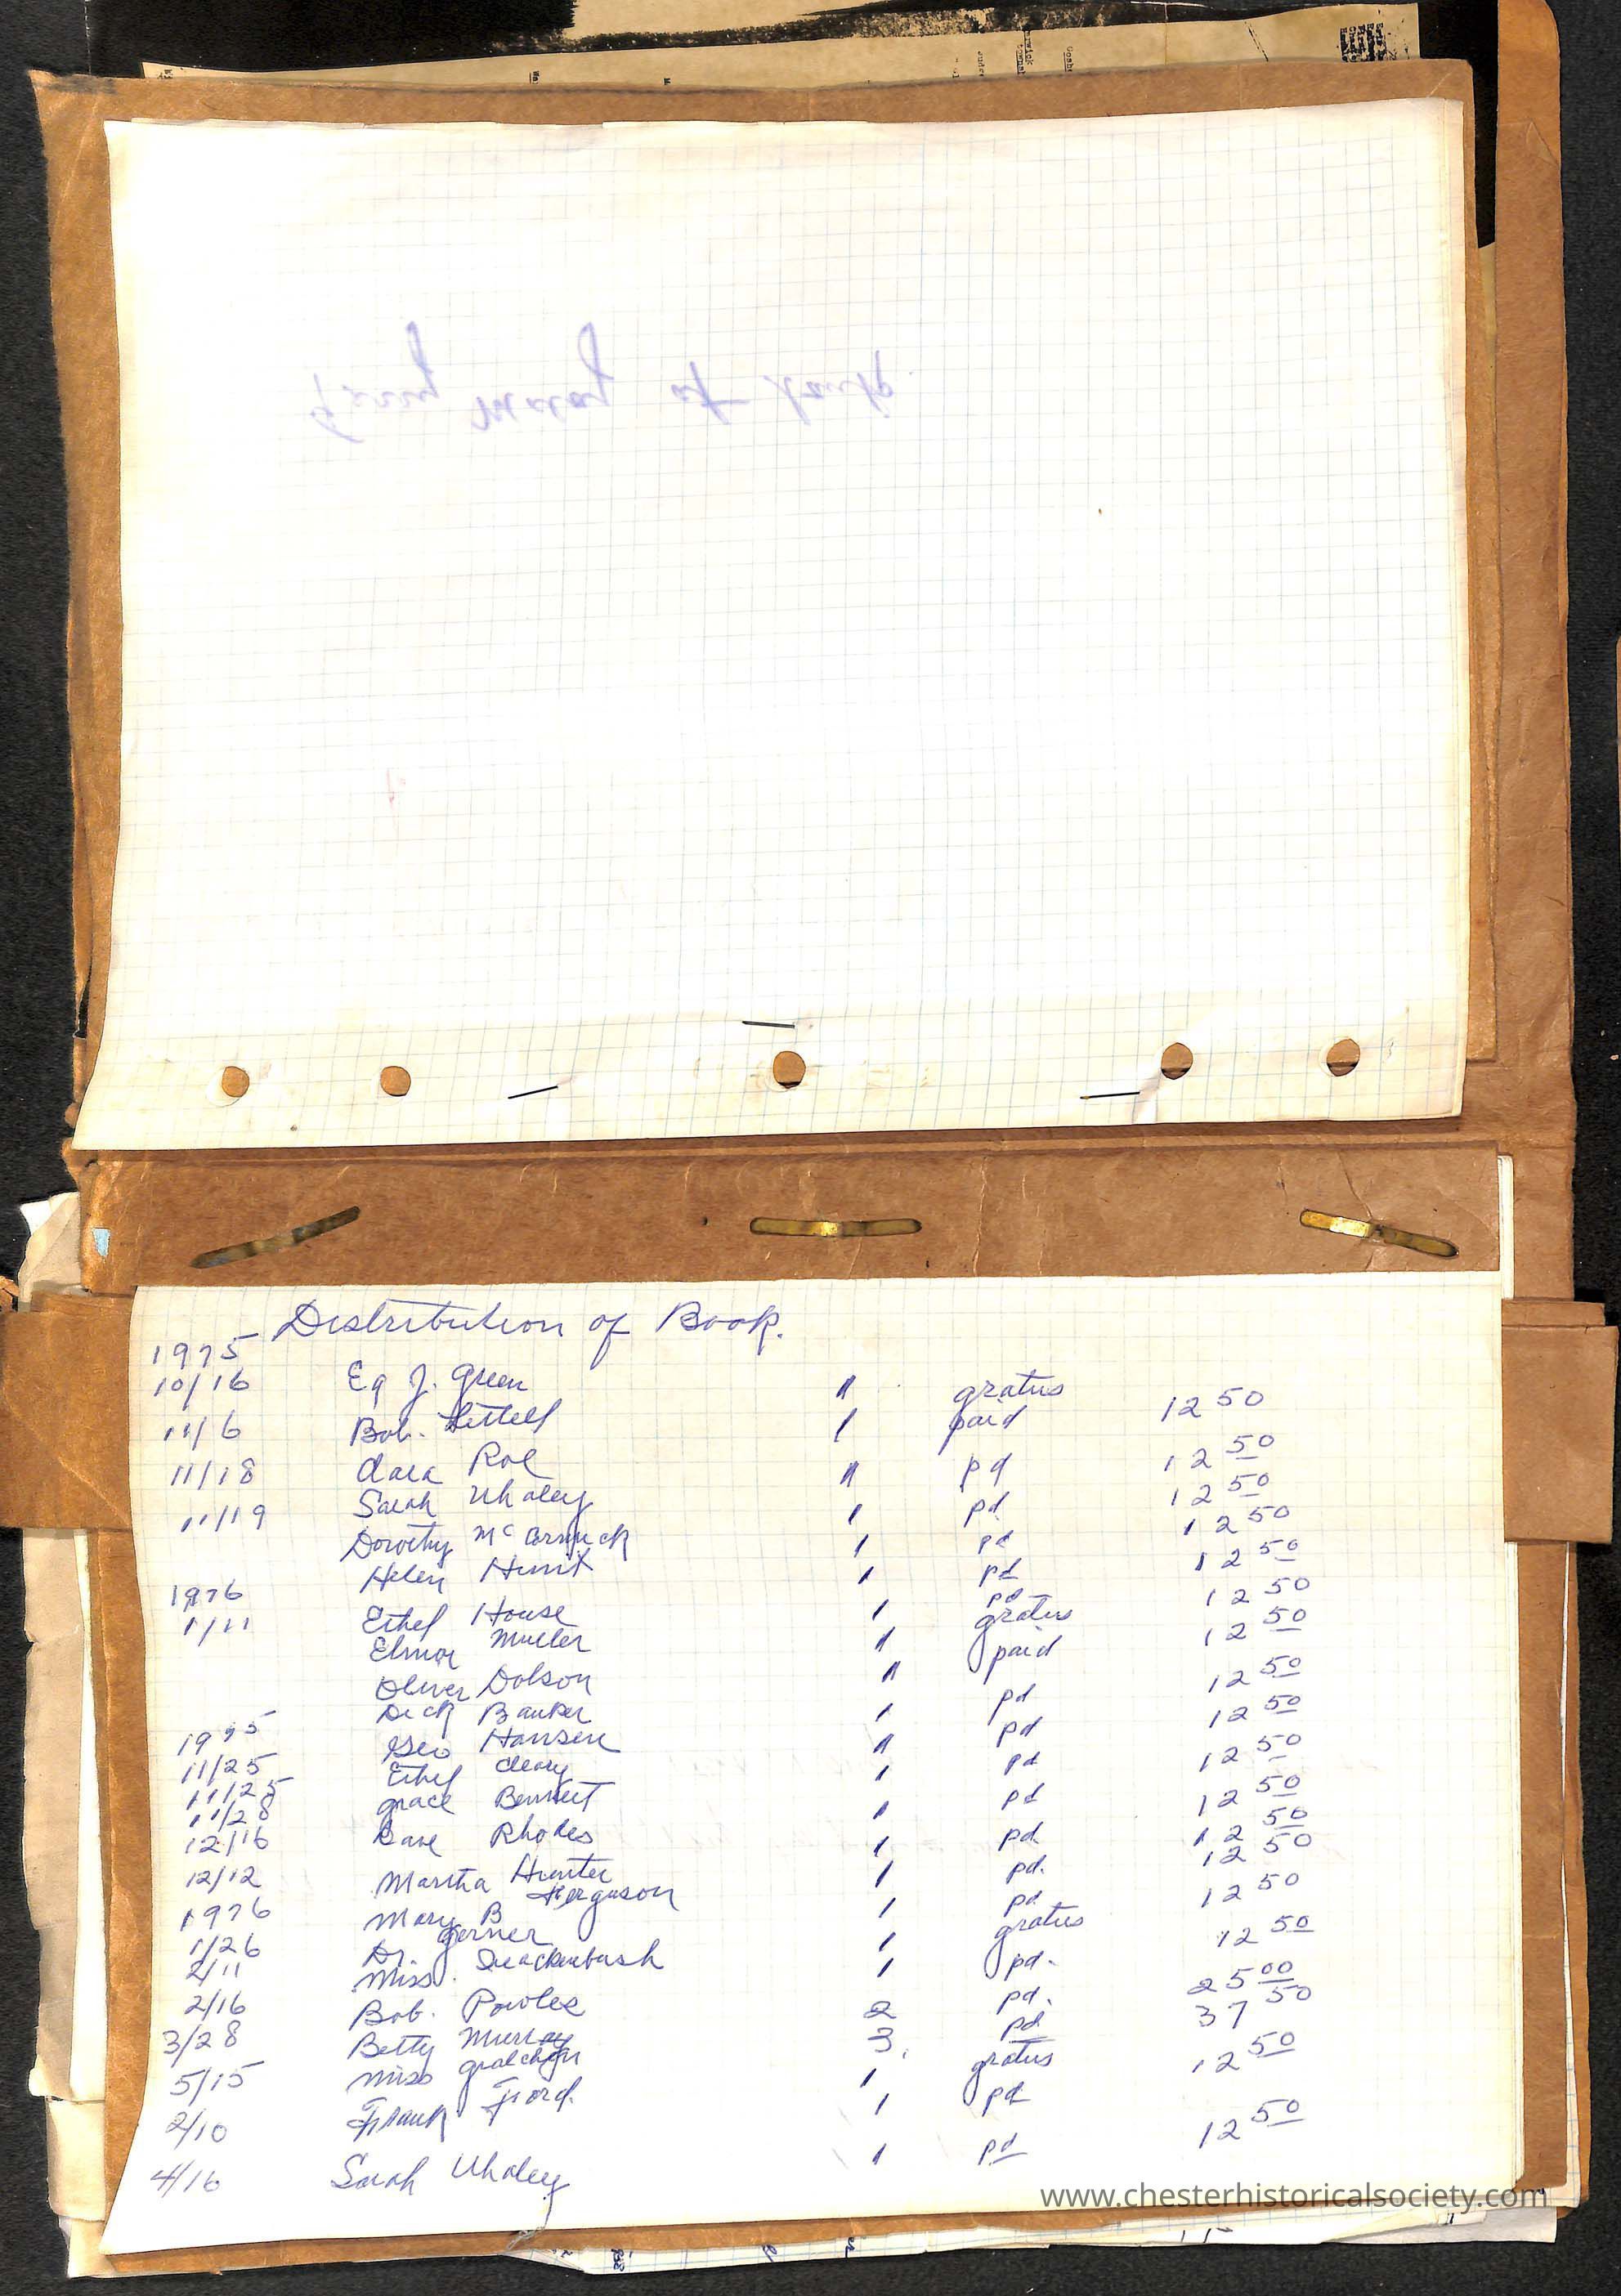 Distribution of Book.
1975
10/16 Eq J. Green 1 gratus
11/6 Bob. Littell 1 paid 12 50
11/18 Clara Roe 1 pd 12 50
11/19 Sarah Whaley 1 pd 12 50
Dorothy McCormick 1 pd 12 50
Helen Hunt 1 pd 12 50
1976
1/11 Ethel House 1 pd 12 50
Elmor Muller 1 gratus
Oliver Dolson 1 paid 12 50
Dick Banker 1 pd 12 50
1975
11/25 Geo Hansen 1 pd 12 50
11/25 Ethel Cleary 1 pd 12 50
11/28 Grace Bennett 1 pd 12 50
12/16 Dave Rhodes 1 pd 12 50
12/12 Martha Hunter 1 pd. 12 50
1976
Mary B Ferguson 1 pd 12 50
1/26 Dr. Gerner 1 gratus
2/11 Miss. Quackenbush 1 pd. 12 50
2/16 Bob. Powles 2 pd. 25 00
3/28 Betty Murray 3. pd 37 50
5/15 Miss 1 gratus
2/10 Frank Ford. 1 pd 12 50
4/16 Sarah Whaley 1 pd 12 50
www.chesterhistoricalsociety.com